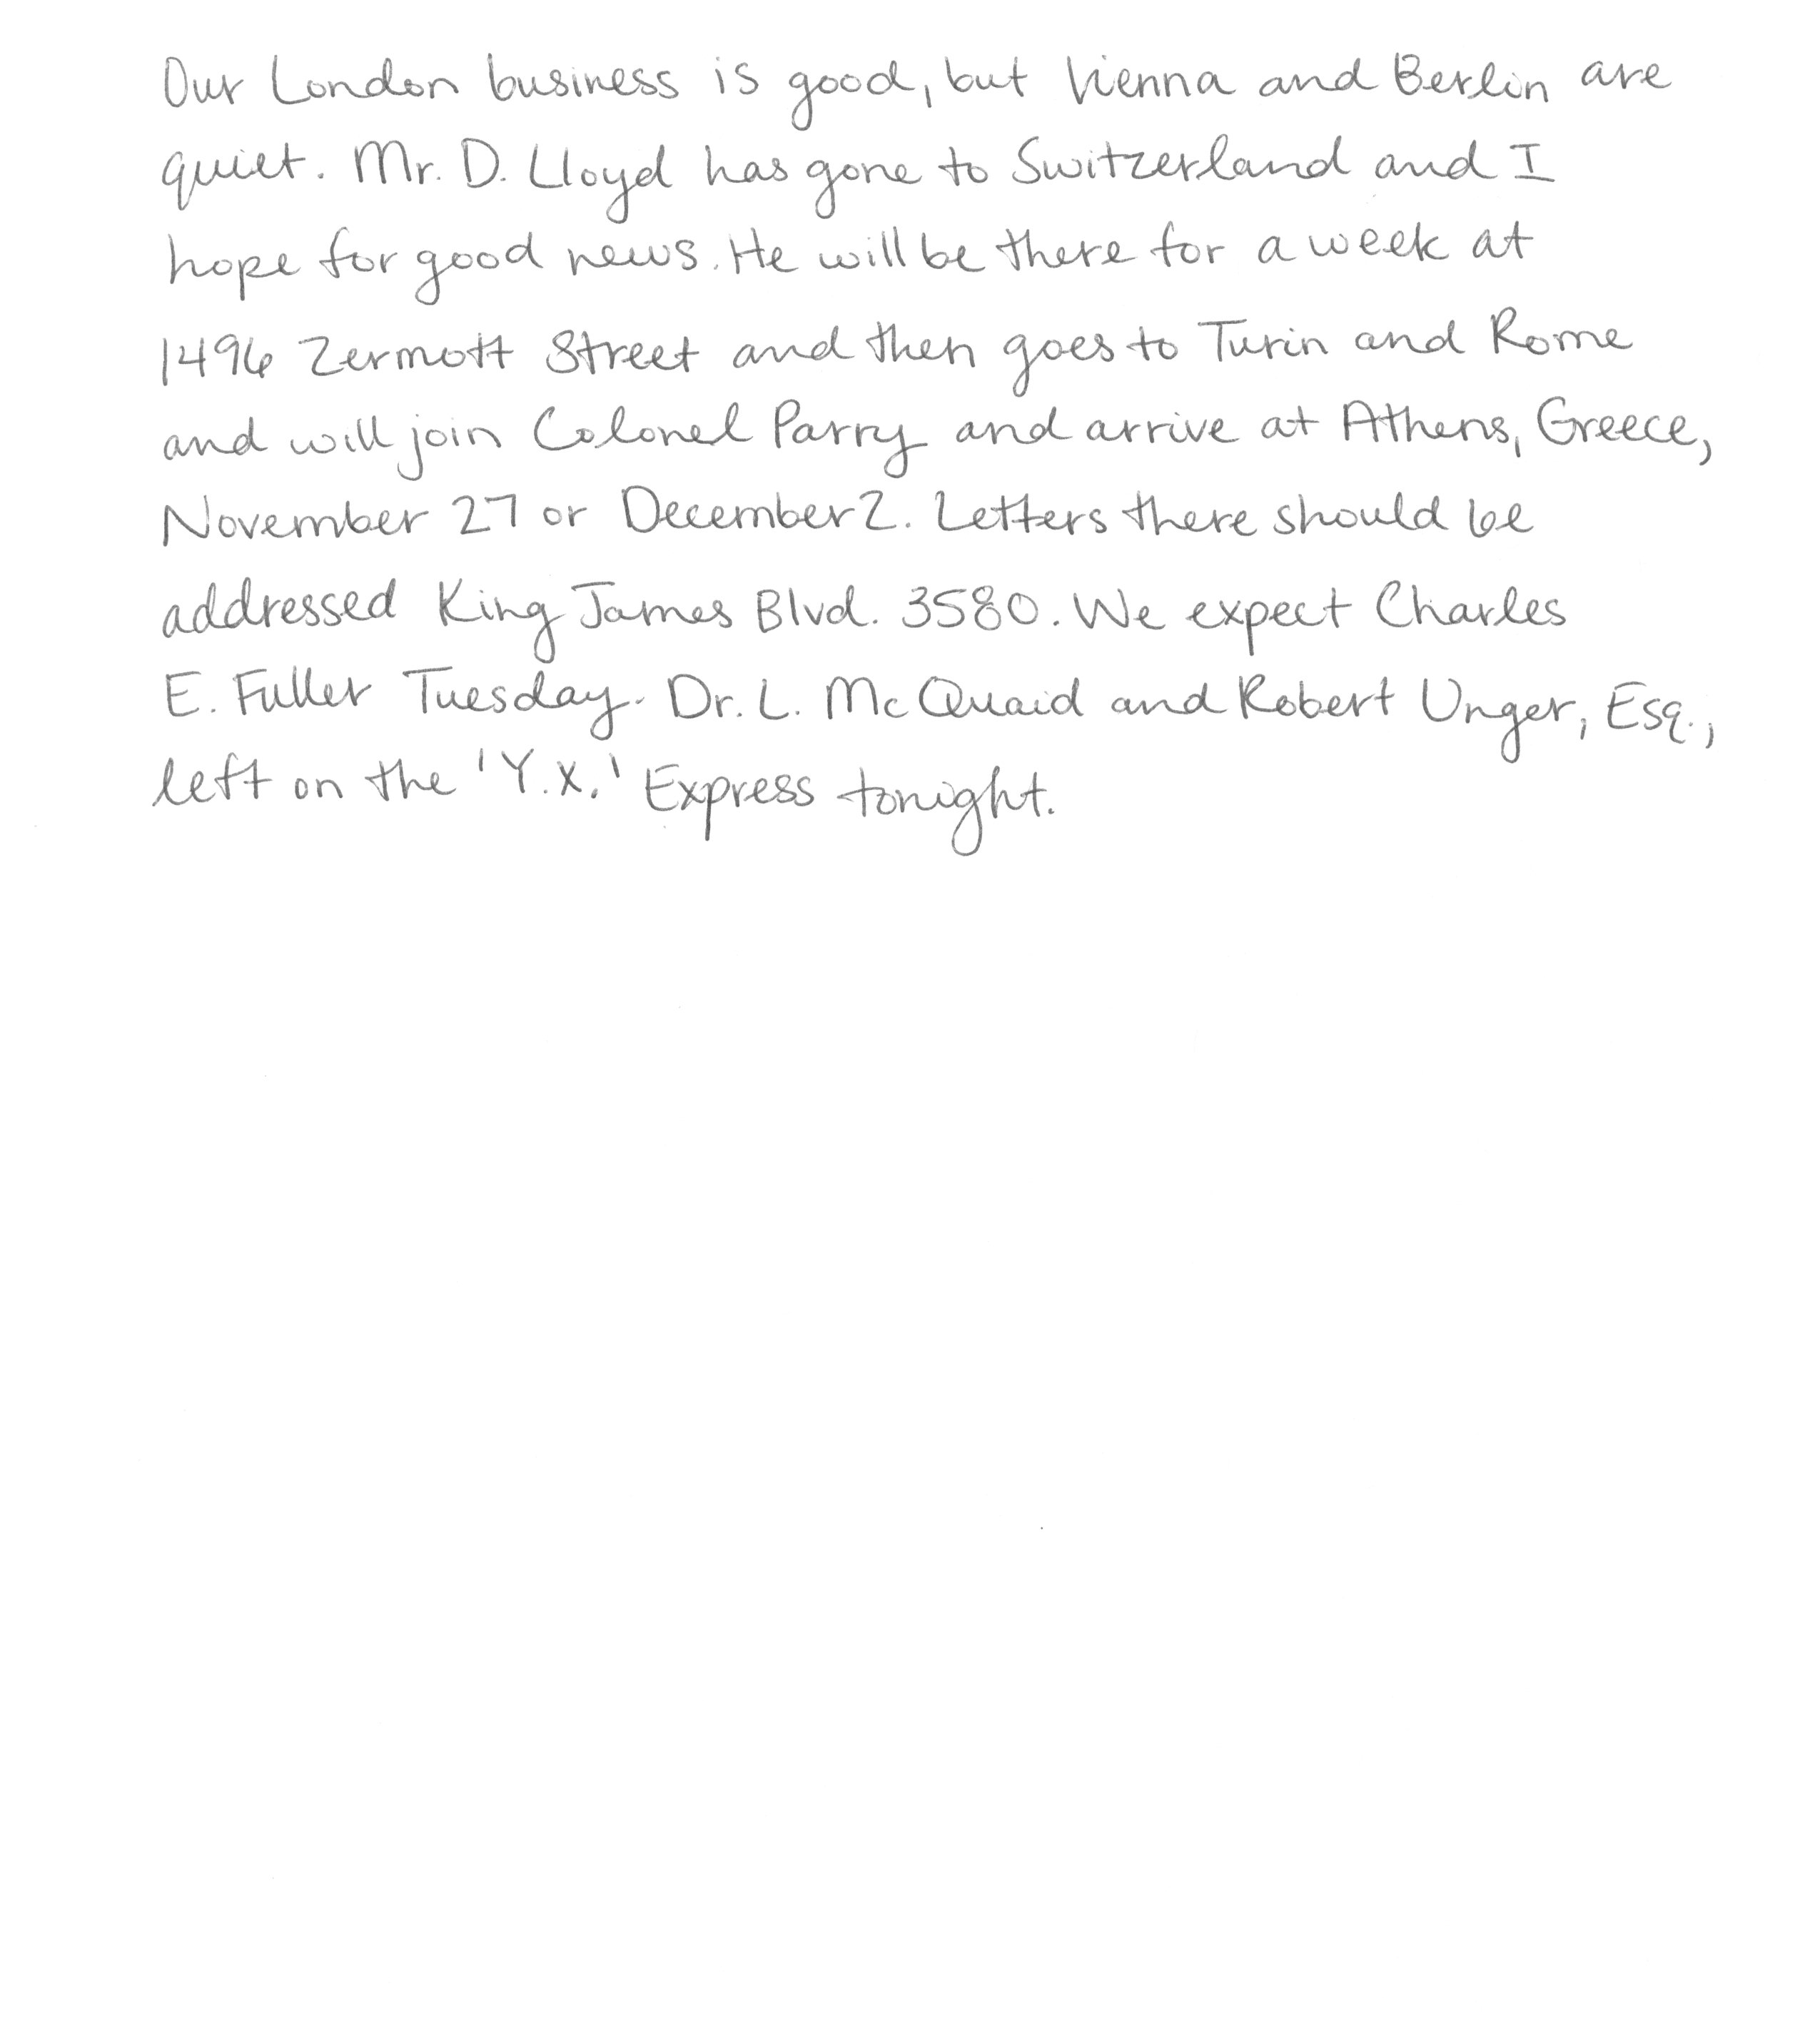 Our London business is good, but Vienna and Berlin are
quiet. Mr. D. Lloyd has gone to Switzerland and I
hope for good news. He will be there for a week at
1496 Zermott Street and then goes to Turin and Rome
and will join Colonel Parry and arrive at Athens, Greece,
November 27 or December 2. Letters there should be
addressed King James Blvd. 3580. We expect Charles
E. Fuller Tuesday. Dr. L. McQuaid and Robert Unger, Esq.,
left on the 'Y.X.' Express tonight.